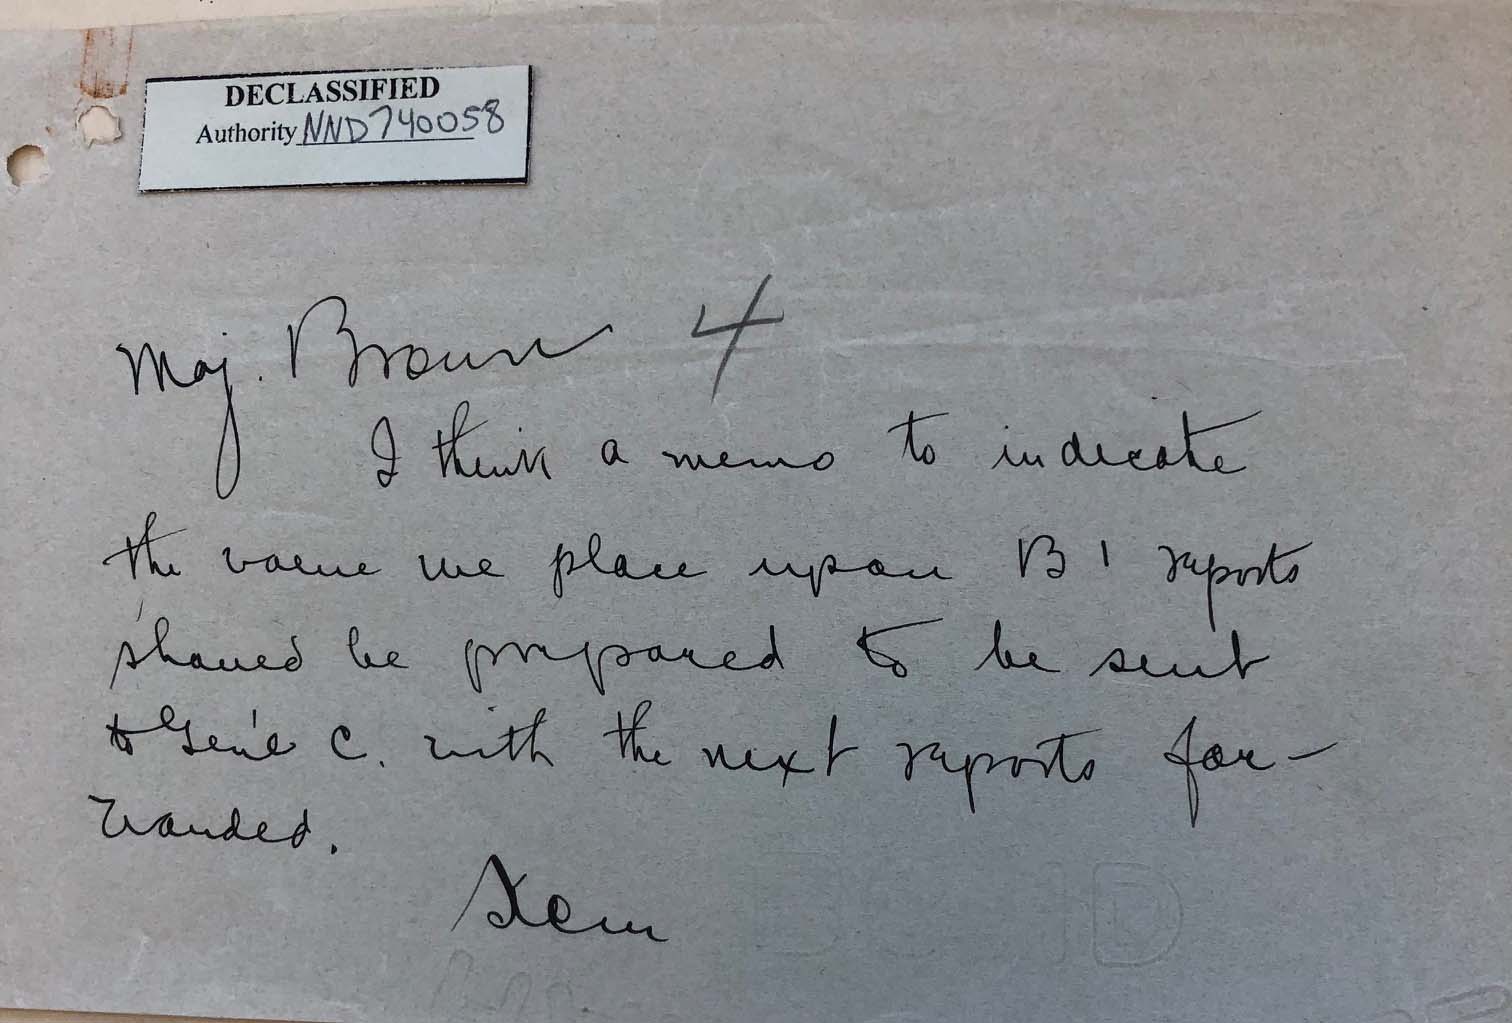 DECLASSIFIED
Authority NND740058
Maj. Brown 4
I think a memo to indicate
the value we place upon B 1 reports
should be prepared to be sent
to Gen'l C. with the next reports for-
warded.